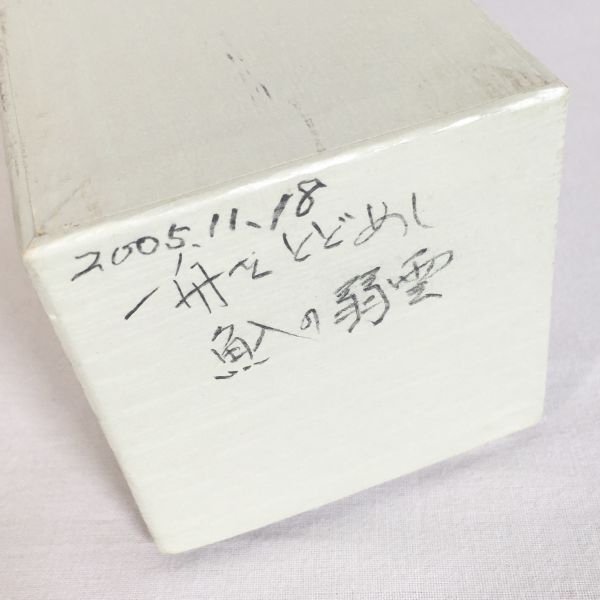 2005.11.18
一舟をとどめし
魞の弱雲